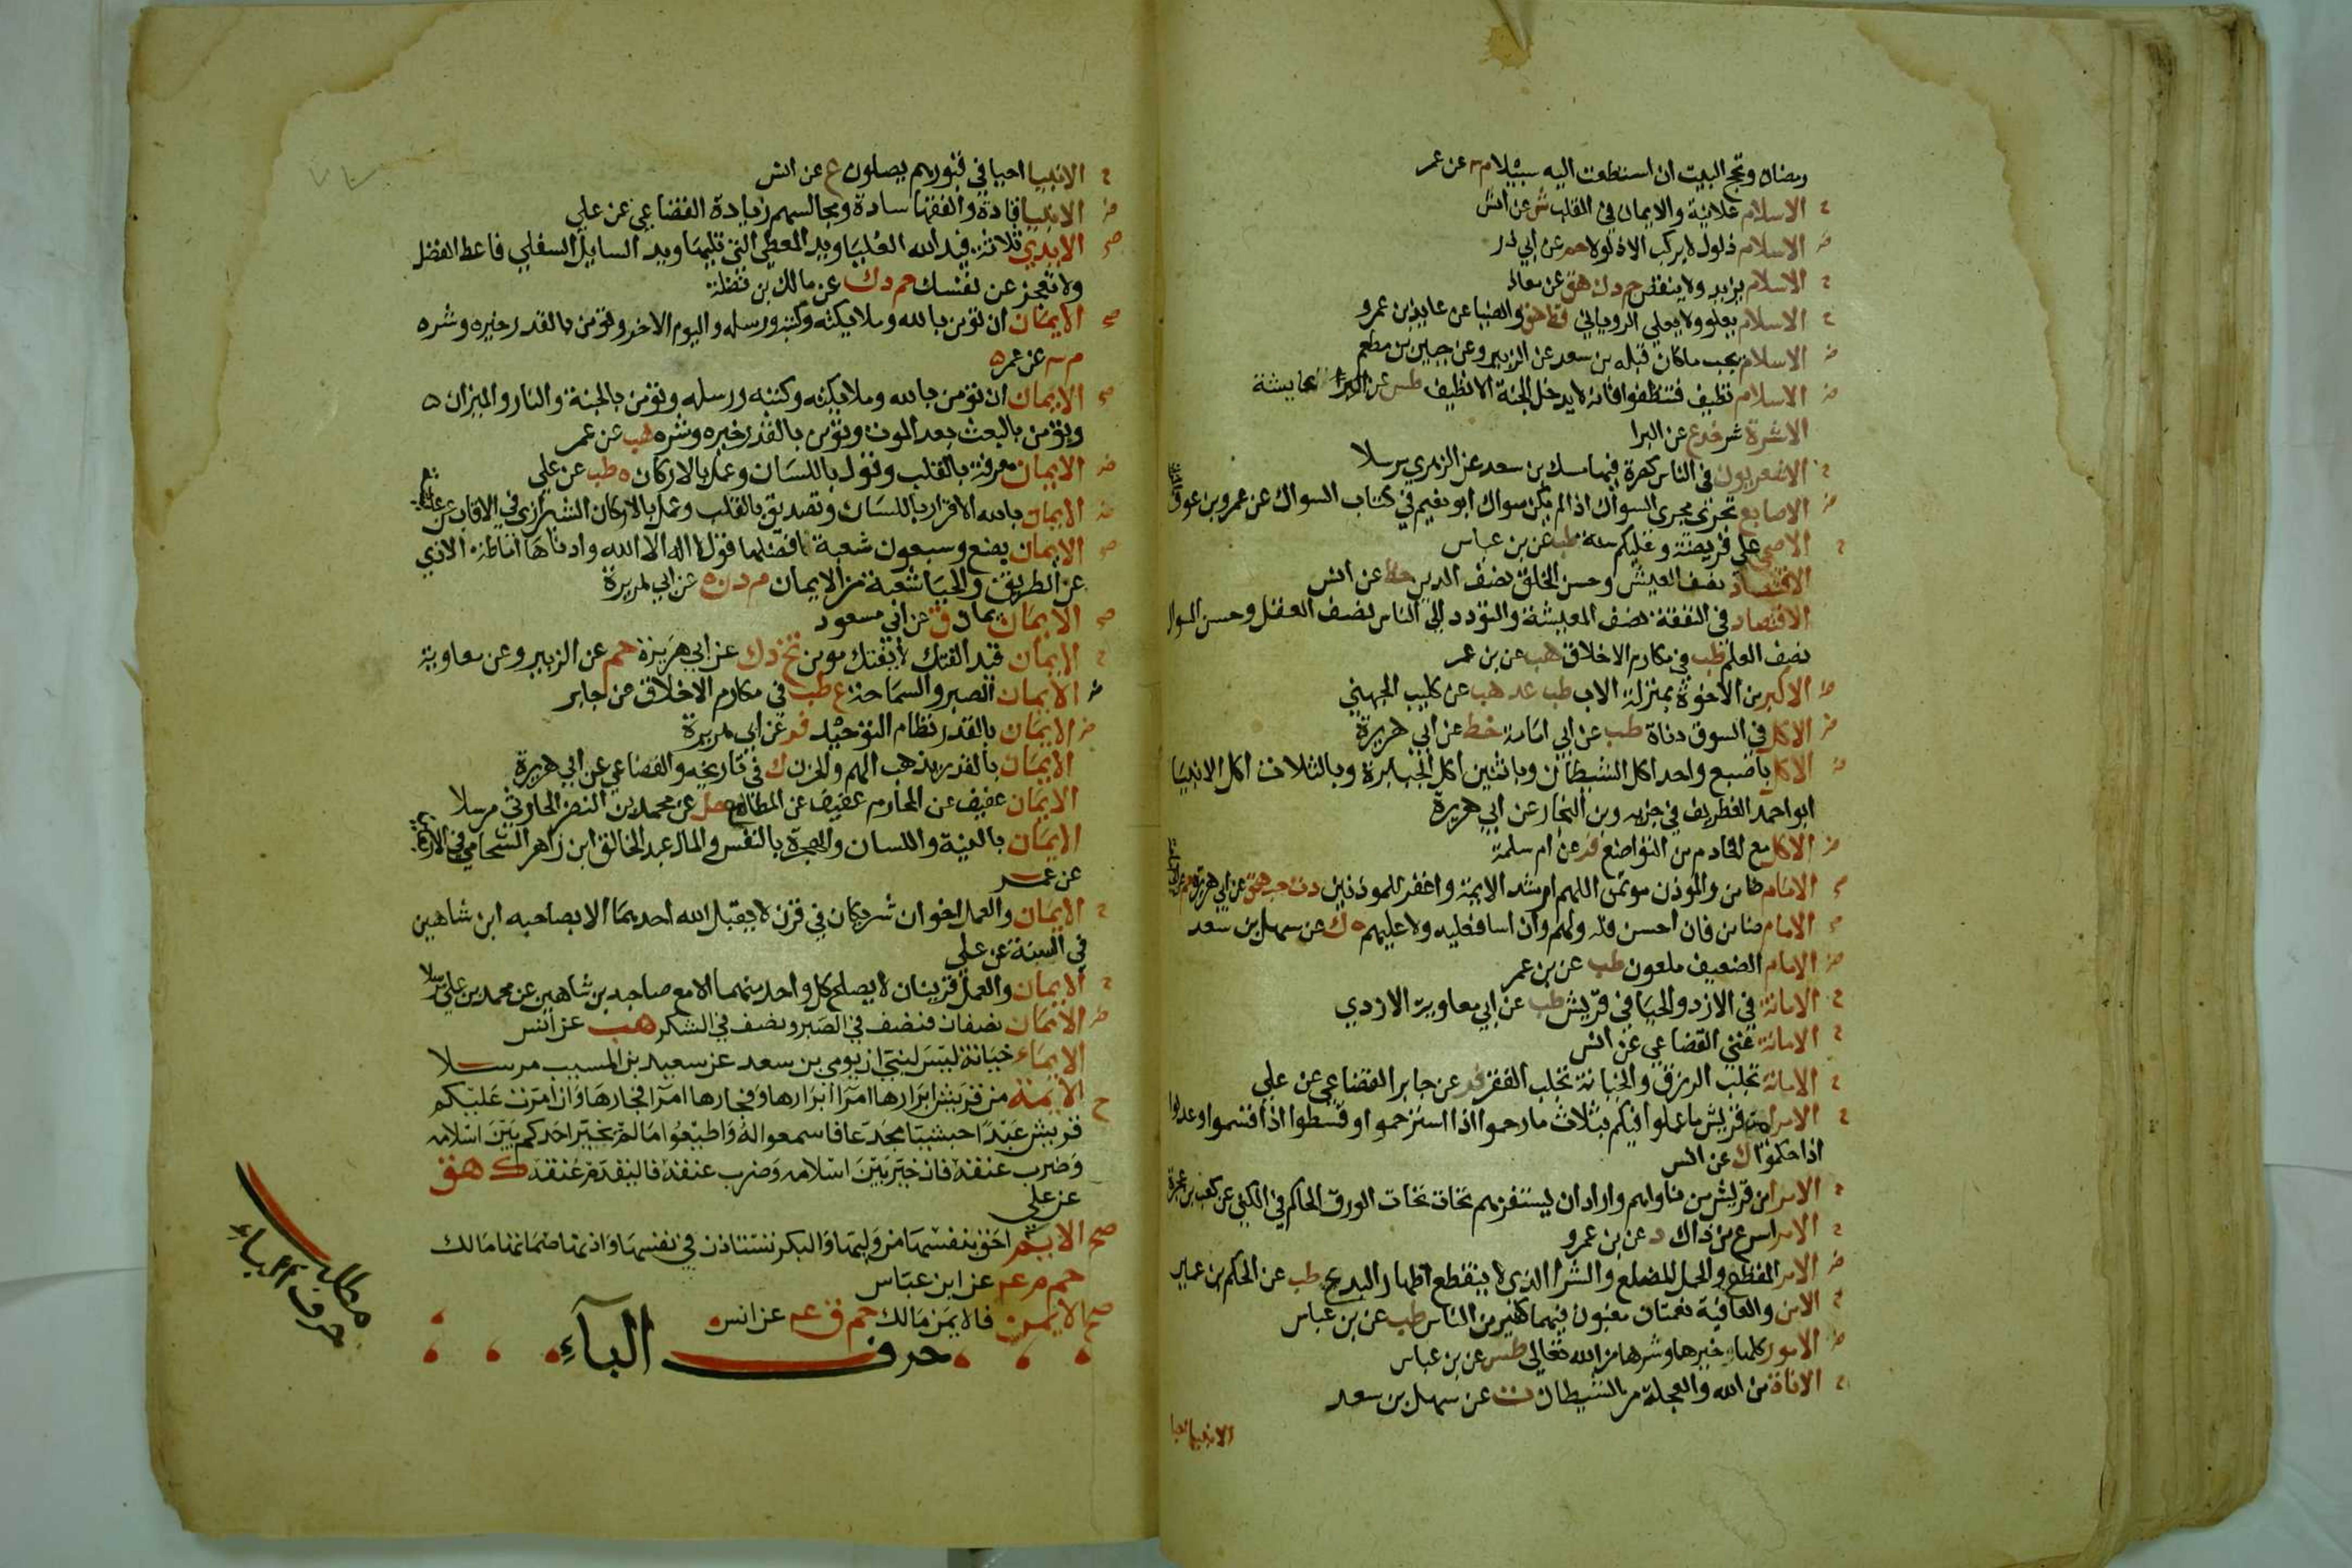 رمضان وتحج البيت ان استطعت اليه سبيلا م ٣ عن عمر
الاسلام علانية والايمان في القلب ش عن انس
الاسلام ذلول لا يركب الا ذلولا حم عن ابي ذر
الاسلام يزيد ولا ينقص حم د ك هق عن معاذ
الاسلام يعلو ولا يعلى الروياني قط هق والضيا عن عايذ بن عمرو
الاسلام يجب ما كان قبله بن سعد عن الزبير وعن جبير بن مطعم
الاسلام نظيف فتنظفوا فانه لا يدخل الجنة الا نظيف طس عن عايشة
الاشرة شر خد ع عن البرا
الاشعريون في الناس كصرة فيها مسك بن سعد عن الزهري مرسلا
الاصابع تجزى مجرى السواك اذا لم يكن سواك ابو نعيم في كتاب السواك عن عمرو بن عوف
الاضحى علي فريضة وعليكم سنة طب عن بن عباس
الاقتصاد نصف العيش وحسن الخلق نصف الدين خط عن انس
الاقتصاد في النفقة نصف المعيشة والتودد الى الناس نصف العقل وحسن السوال
نصف العلم طب في مكارم الاخلاق هب عن بن عمر
الاكبر من الاخوة بمنزلة الاب طب عد هب عن كليب الجهني
الاكل في السوق دناة طب عن ابي امامة خط عن ابي هريرة
الاكل باصبع واحد اكل الشيطان وباثنين اكل الجبابرة وبالثلاث اكل الانبيا
ابو احمد الغطريف في جزيه وبن النجار عن ابي هريرة
الاكل مع الخادم من التواضع فر عن ام سلمة
الامام ضامن والموذن موتمن اللهم ارشد الايمة واغفر للموذنين د ت حب هق عن ابي هريرة
الامام ضامن فان احسن فله ولهم وان اسا فعليه ولا عليهم ه ك عن سهل بن سعد
الامام الضعيف ملعون طب عن بن عمر
الامانة في الازد والحيا في قريش طب عن ابي معاوية الازدي
الامانة غنى القضاعي عن انس
الامانة تجلب الرزق والخيانة تجلب الفقر فر عن جابر القضاعي عن علي
الامرا من قريش ما عملوا فيكم بثلاث ما رحموا اذا استرحموا وقسطوا اذا قسموا وعدلوا
اذا حكموا ك عن انس
الامرا من قريش من ناواهم واراد ان يستفزهم تحات تحات الورق الحاكم في الكنى عن كعب بن عجرة
الامر اسرع من ذاك د عن بن عمرو
الامر المفظع والحمل المضلع والشر الذي لا ينقطع اظهار البدع طب عن الحكم بن عمير
الامن والعافية نعمتان مغبون فيهما كثير من الناس طب عن بن عباس
الامور كلها خيرها وشرها من الله تعالى طس عن بن عباس
الاناة من الله والعجلة من الشيطان ت عن سهل بن سعد
الانبيا
الانبيا احيا في قبورهم يصلون ع عن انس
الانبيا قادة والفقها سادة ومجالسهم زيادة القضاعي عن علي
الايدي ثلاثة فيد الله العليا ويد المعطي التي تليها ويد السايل السفلى فاعط الفضل
ولا تعجز عن نفسك حم د ك عن مالك بن نضلة
الايمان ان تومن بالله وملايكته وكتبه ورسله واليوم الاخر وتومن بالقدر خيره وشره
م ٣ عن عمر
الايمان ان تومن بالله وملايكته وكتبه ورسله وتومن بالجنة والنار والميزان
وتومن بالبعث بعد الموت وتومن بالقدر خيره وشره هب عن عمر
الايمان معرفة بالقلب وقول باللسان وعمل بالاركان ه طب عن علي
الايمان بالله الاقرار باللسان وتصديق بالقلب وعمل بالاركان الشيرازي في الالقاب عن عايشة
الايمان بضع وسبعون شعبة فافضلها قول لا اله الا الله وادناها اماطة الاذي
عن الطريق والحيا شعبة من الايمان م د ن ه عن ابي هريرة
الايمان يمان ق عن ابي مسعود
الايمان قيد الفتك لا يفتك مومن تخ د ك عن ابي هريرة حم عن الزبير وعن معاوية
الايمان الصبر والسماحة ع طب في مكارم الاخلاق عن جابر
الايمان بالقدر نظام التوحيد فر عن ابي هريرة
الايمان بالقدر يذهب الهم والحزن ك في تاريخه والقضاعي عن ابي هريرة
الايمان عفيف عن المحارم عفيف عن المطامع حل عن محمد بن النضر الحارثي مرسلا
الايمان بالنية واللسان والهجرة بالنفس والمال عبد الخالق ابن زاهر الشحامي في الاربعين
عن عمر
الايمان والعمل اخوان شريكان في قرن لا يقبل الله احدهما الا بصاحبه ابن شاهين
في السنة عن علي
الايمان والعمل قرينان لا يصلح كل واحد منهما الا مع صاحبه بن شاهين عن محمد بن علي مرسلا
الايمان نصفان فنصف في الصبر ونصف في الشكر هب عن انس
الايماء خيانة ليس لنبي ان يومي بن سعد عن سعيد بن المسيب مرسلا
الايمة من قريش ابرارها امرا ابرارها وفجارها امرا فجارها وان امرت عليكم
قريش عبدا حبشيا مجدعا فاسمعوا له واطيعوا ما لم يخير احدكم بين اسلامه
وضرب عنقه فان خير بين اسلامه وضرب عنقه فاليقدم عنقه ك هق
عن علي
صح الايم احق بنفسها من وليها والبكر تستاذن في نفسها واذنها صماتها مالك
حم م عه عن ابن عباس
صح الايمن فالايمن مالك حم ق عه عن انس
حرف البآء
مطلب
حرف الباء